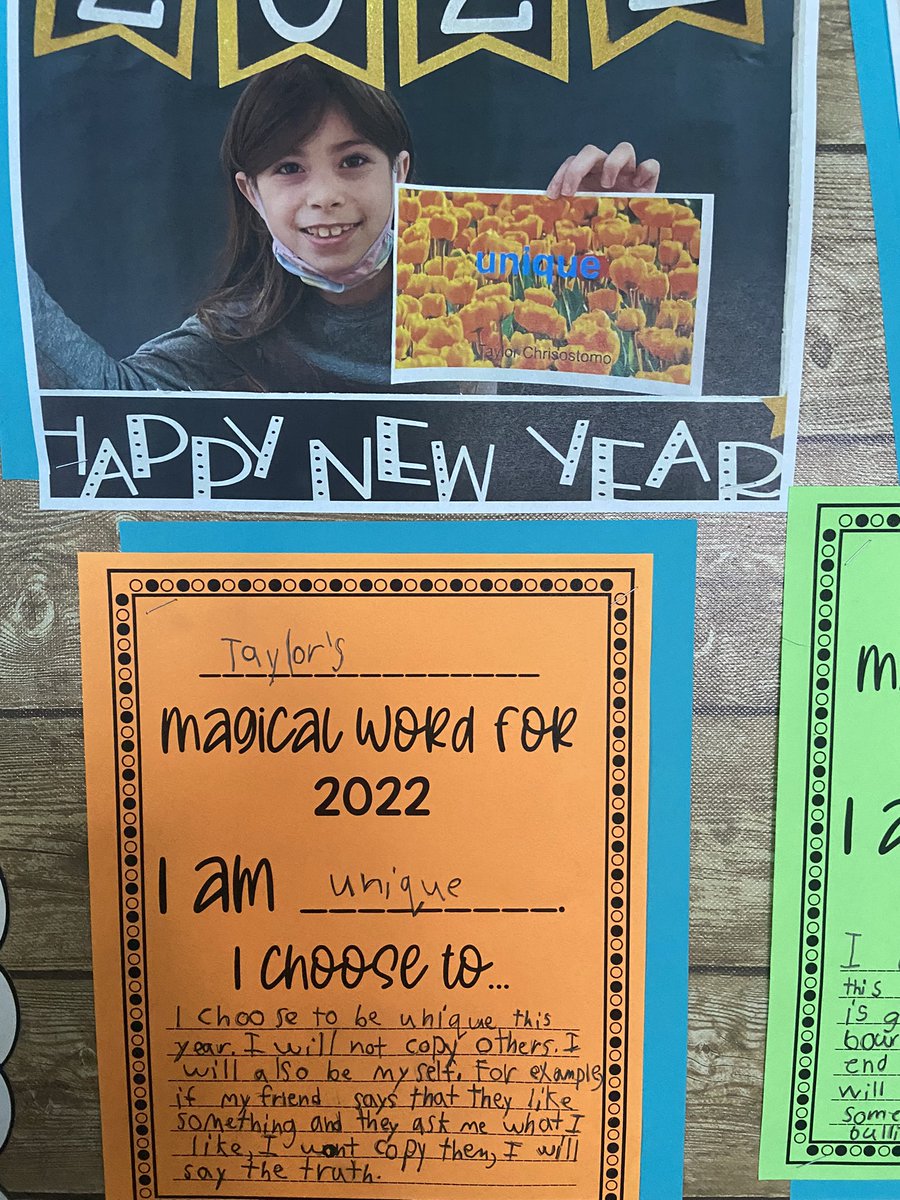 2022
unique
Taylor Chrisostomo
HAPPY NEW YEAR
Taylor's
Magical Word for
2022
I am unique.
I choose to...
I choose to be unique this
year. I will not copy others. I
will also be my self. For example
if my friend says that they like
something and they ask me what I
like, I wont copy them, I will
say the truth.
I
this
is
end
will